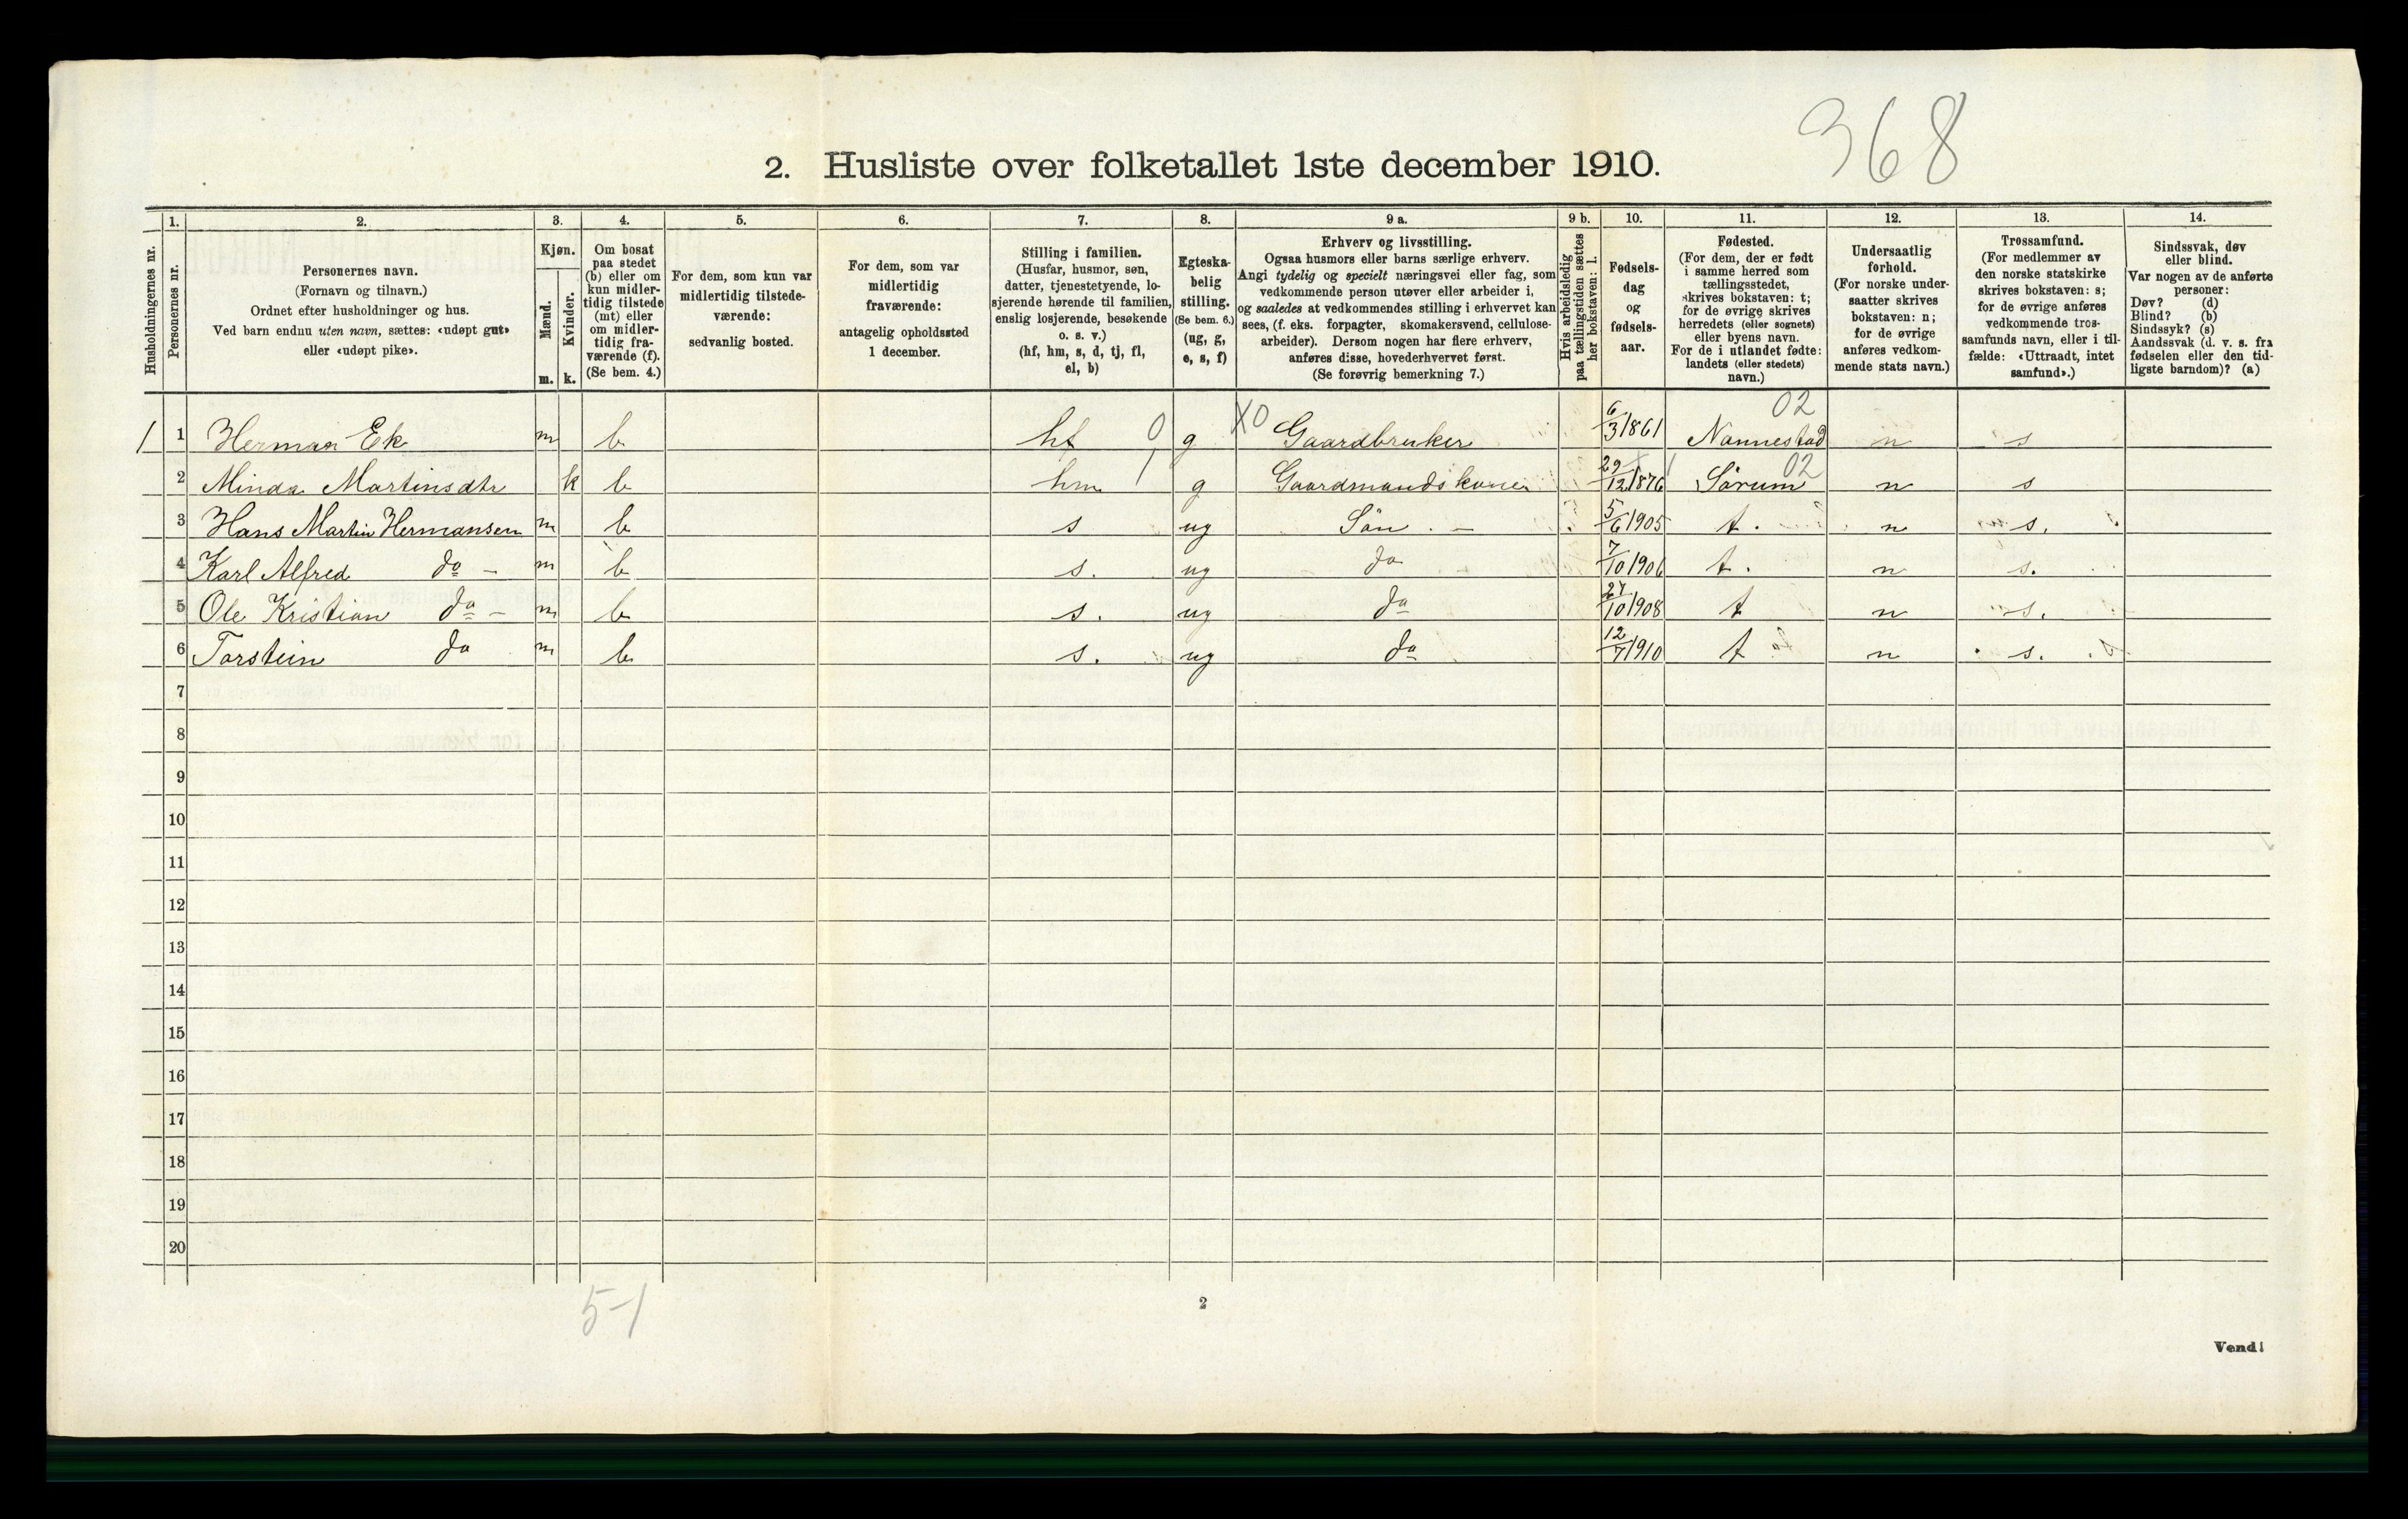 368
2. Husliste over folketallet 1ste december 1910.
Husholdningernes nr.
1.
Personernes nr.
2.
Personernes navn.
(Fornavn og tilnavn.)
Ordnet efter husholdninger og hus.
Ved barn endnu uten navn, sættes: «udøpt gut»
eller «udøpt pike».
3.
Kjøn.
Mænd.
m.
Kvinder.
k.
4.
Om bosat
paa stedet
(b) eller om
kun midler-
tidig tilstede
(mt) eller
om midler-
tidig fra-
værende (f).
(Se bem. 4.)
5.
For dem, som kun var
midlertidig tilstede-
værende:
sedvanlig bosted.
6.
For dem, som var
midlertidig
fraværende:
antagelig opholdssted
1 december.
7.
Stilling i familien.
(Husfar, husmor, søn,
datter, tjenestetyende, lo-
sjerende hørende til familien,
enslig losjerende, besøkende
o. s. v.)
(hf, hm, s, d, tj, fl,
el, b)
8.
Egteska-
belig
stilling.
(Se bem. 6.)
(ug, g,
e, s, f)
9 a.
Erhverv og livsstilling.
Ogsaa husmors eller barns særlige erhverv.
Angi tydelig og specielt næringsvei eller fag, som
vedkommende person utøver eller arbeider i,
og saaledes at vedkommendes stilling i erhvervet kan
sees, (f. eks. forpagter, skomakersvend, cellulose-
arbeider). Dersom nogen har flere erhverv,
anføres disse, hovederhvervet først.
(Se forøvrig bemerkning 7.)
9 b.
Hvis arbeidsledig
paa tællingstiden sættes
her bokstaven: l.
10.
Fødsels-
dag
og
fødsels-
aar.
11.
Fødested.
(For dem, der er født
i samme herred som
tællingsstedet,
skrives bokstaven: t;
for de øvrige skrives
herredets (eller sognets)
eller byens navn.
For de i utlandet fødte:
landets (eller stedets)
navn.)
12.
Undersaatlig
forhold.
(For norske under-
saatter skrives
bokstaven: n;
for de øvrige
anføres vedkom-
mende stats navn.)
13.
Trossamfund.
(For medlemmer av
den norske statskirke
skrives bokstaven: s;
for de øvrige anføres
vedkommende tros-
samfunds navn, eller i til-
fælde: «Uttraadt, intet
samfund».)
14.
Sindssvak, døv
eller blind.
Var nogen av de anførte
personer:
Døv? (d)
Blind? (b)
Sindssyk? (s)
Aandssvak (d. v. s. fra
fødselen eller den tid-
ligste barndom)? (a)
1 1 Herman Ek m b hf 0 g X0 Gaardbruker 6/3 1861 Nannestad 02 n s
2 Minda Martinsdtr k b hm 1 g Gaardmandskone 29/12 1876 Sörum 02 n s
3 Hans Martin Hermansen m b s ug Sön. – 5/6 1905 t. n s.
4 Karl Alfred do – m b s. ug do 7/10 1906 t. n s.
5 Ole Kristian do – m b s. ug do 27/10 1908 t n s.
6 Torstein do m b s. ug do 12/7 1910 t n s.
7
8
9
10
11
12
13
14
15
16
17
18
19
20
5-1
2
Vend!